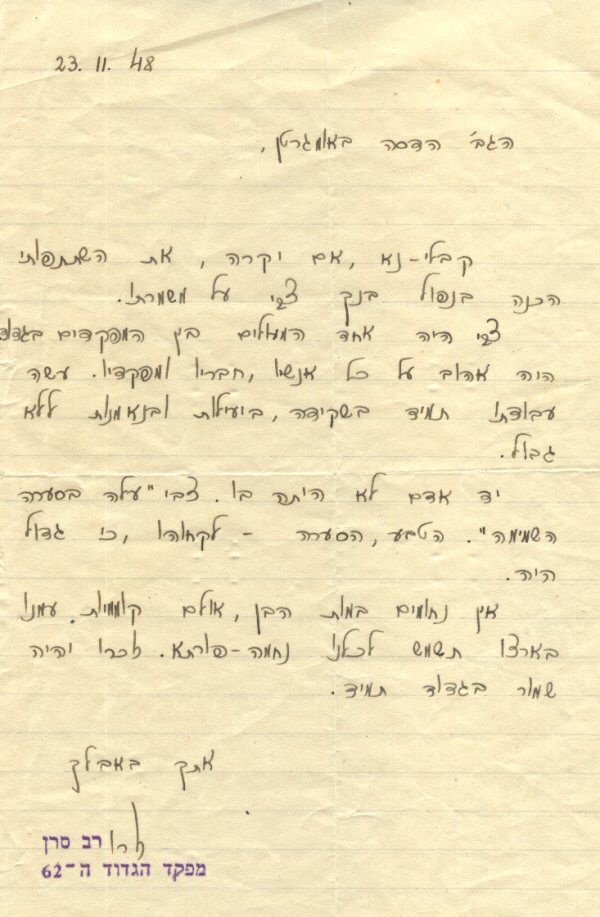 23. 11. 48
הגב' הדסה באומגרטן,
קבלי-נא, אם יקרה, את השתתפותי
הכנה בנפול בנך צבי על משמרתו.
צבי היה אחד המעולים בין המפקדים בגדוד
היה אהוב על כל אנשיו, חבריו ומפקדיו. עשה
עבודתו תמיד בשקידה, ביעילות ובנאמנות ללא
גבול.
יד אדם לא היתה בו. צבי "עלה בסערה
השמימה". הטבע, הסערה - לקחוהו, כי גדול
היה.
אין נחומים במות הבן, אולם קוממיות עמנו
בארצו תשמש לכלנו נחמה-פורתא. זכרו יהיה
שמור בגדוד תמיד.
אתך באבלך
רב סרן
מפקד הגדוד ה-62